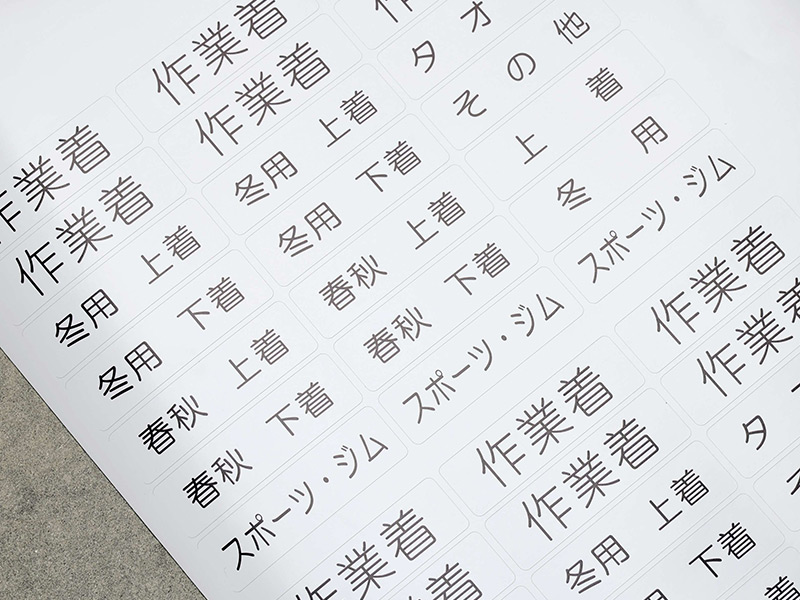 作業着
作業着
冬用 上着
冬用 下着
春秋 上着
春秋 下着
スポーツ・ジム
作業着
業着
作業着
作業着
冬用 上着
冬用 下着
春秋 上着
春秋 下着
スポーツ・ジム
作業着
作業着
冬用 上着
用 下着
着
作
タオ
その他
上着
冬用
スポーツ・ジム
作業着
作業着
タ